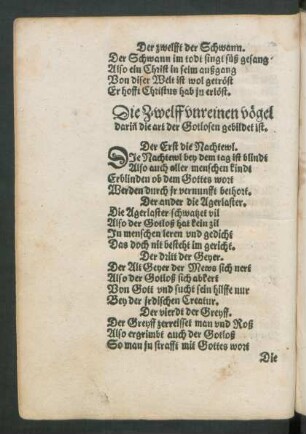 Der zwelfft der Schwann.
Der Schwann im todt singt süß gesang
Also ein Christ in seim außgang
Von diser Welt ist wol getröst
Er hofft Christus hab jn erlöst.
Die Zwelff vnreinen vögel
dariñ die art der Gotlosen gebildet ist.
Der Erst die Nachtewl.
Die Nachtewl bey dem tag ist blindt
Also auch aller menschen kindt
Erblinden ob dem Gottes wort
Werden durch jr vernunfft bethort.
Der ander die Agerlaster.
Die Agerlaster schwatzet vil
Also der Gotloß hat kein zil
In menschen leren vnd gedicht
Das doch nit besteht im gericht.
Der dritt der Geyer.
Der Alt Geyer der Mews sich nert
Also der Gotloß sich abkert
Von Gott vnd sucht sein hilffe nur
Bey der jrdischen Creatur.
Der vierdt der Greyff.
Der Greyff zerreisset man vnd Roß
Also ergrimbt auch der Gotloß
So man jn strafft mit Gottes wort
Die